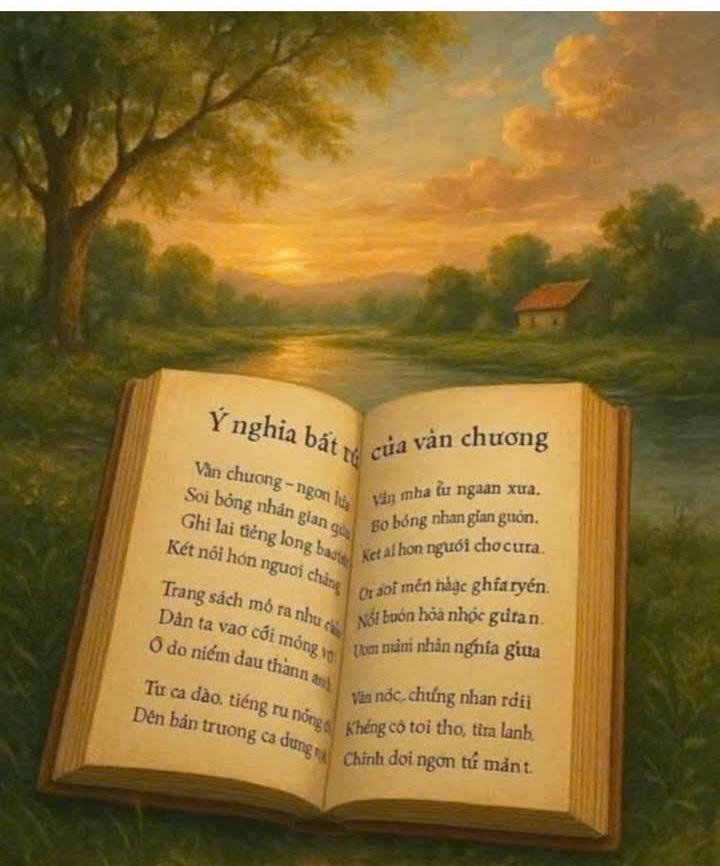 Ý nghia bất
của vàn chương
Vằn chương – ngon lửa
Soi bông nhán glan
Ghi lai tiêng long
Két nôi hón ngươi chảng
Trang sách mỏ ra như
Dẫn ta vaơ cỡi móng
Ô do niếm dau thành
Tư ca dào, tiéng ru nóng
Dên bản trương ca dưng
Văn mha từ ngaan xưa.
Bo bóng nhan gian guòn.
Ket al hon người chocưra.
mến hàạc ghfaryén.
Nổi buón hòà nhọc guran.
nhãn nghĩa giua
Văn nóc, chưńg nhan
Khéng cò toi tho, tira lanh.
Chính doi ngơn tứ mản t.